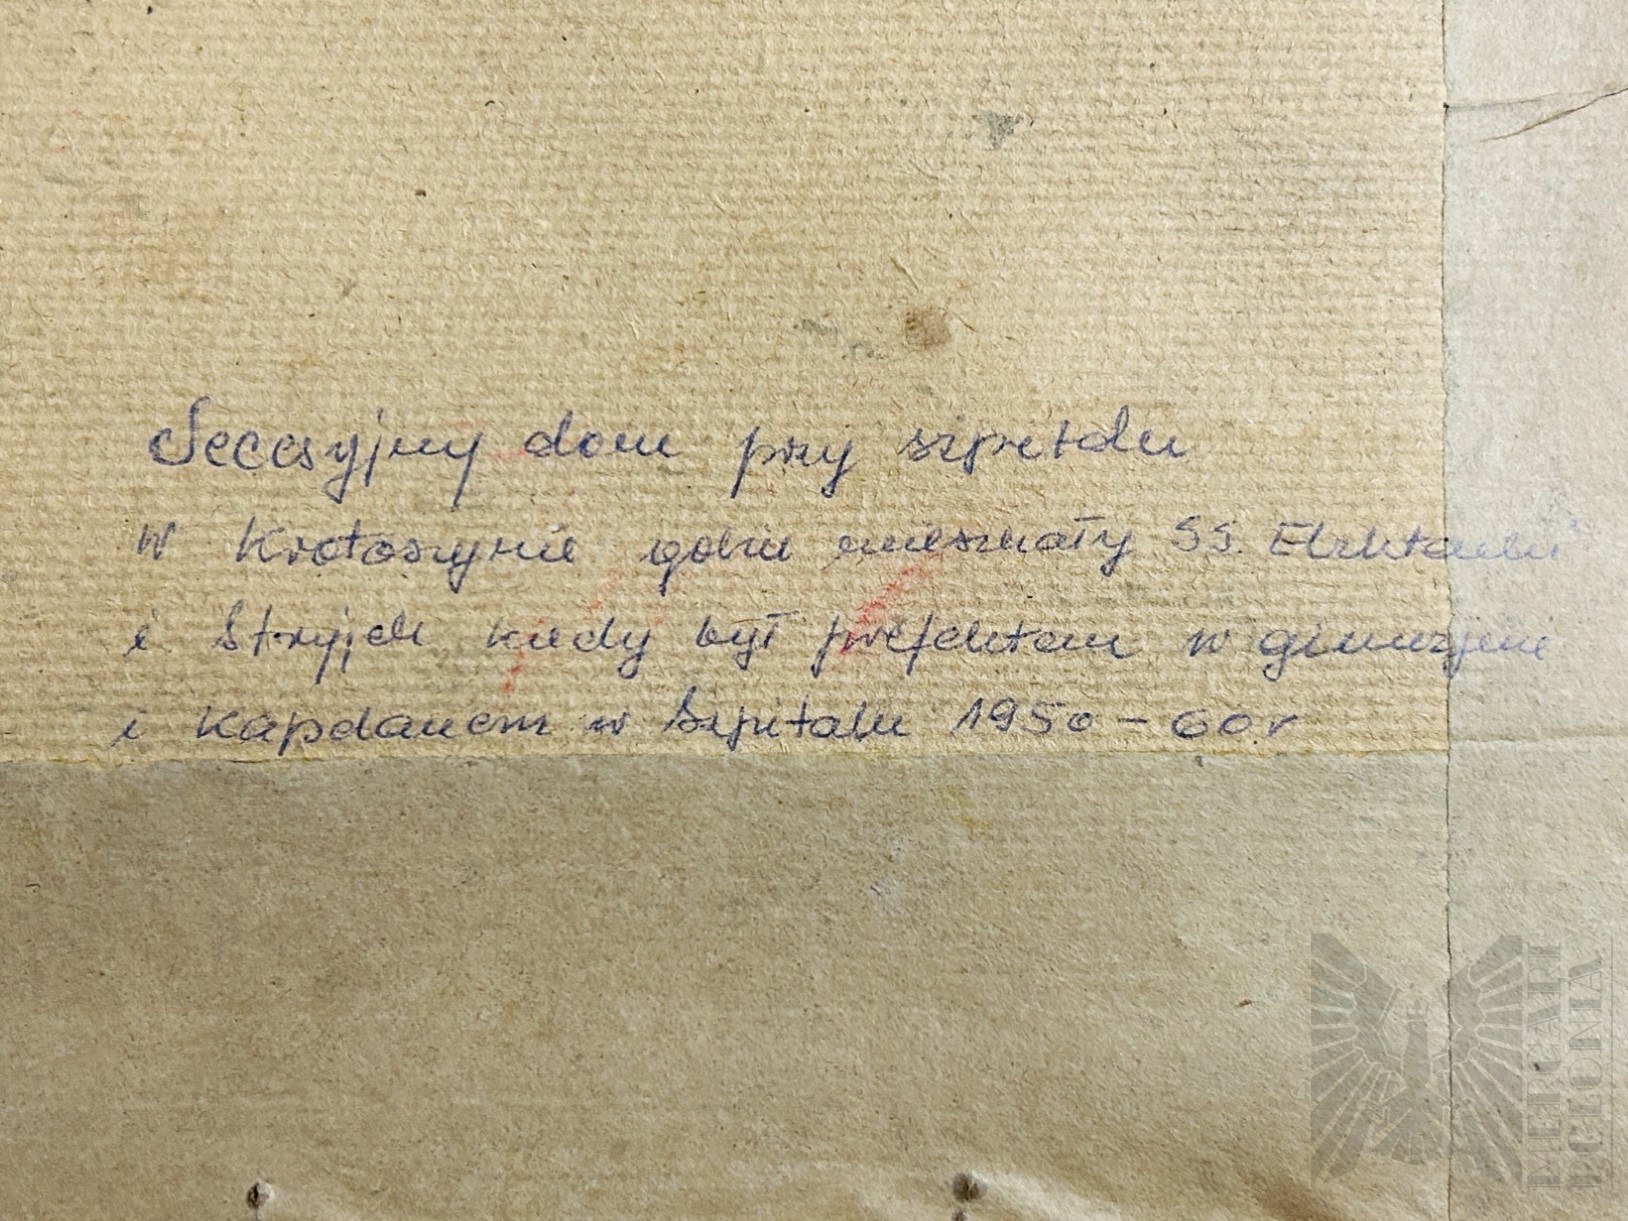 Secesyjny dom przy szpitalu
w Krotoszynie gdzie mieszkały SS. Elżbietanki
i Stryjek kiedy był prefektem w gimnazjum
i kapelanem w Szpitalu 1950-60 r
MERCARI
POLONIA